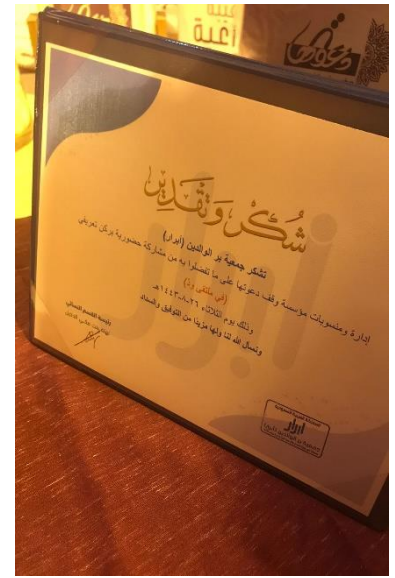 دعوتها
شكر وتقدير
تشكر جمعية بر الوالدين (أبرار)
إدارة ومنسوبات مؤسسة وقف دعوتها على ما تفضلوا به من مشاركة حضورية بركن تعريفي
(في ملتقى ود)
وذلك يوم الثلاثاء ٢٦-٨-١٤٤٣هـ
ونسأل الله لنا ولها مزيدًا من التوفيق والسداد
رئيسة القسم النسائي
أبرار
أبرار